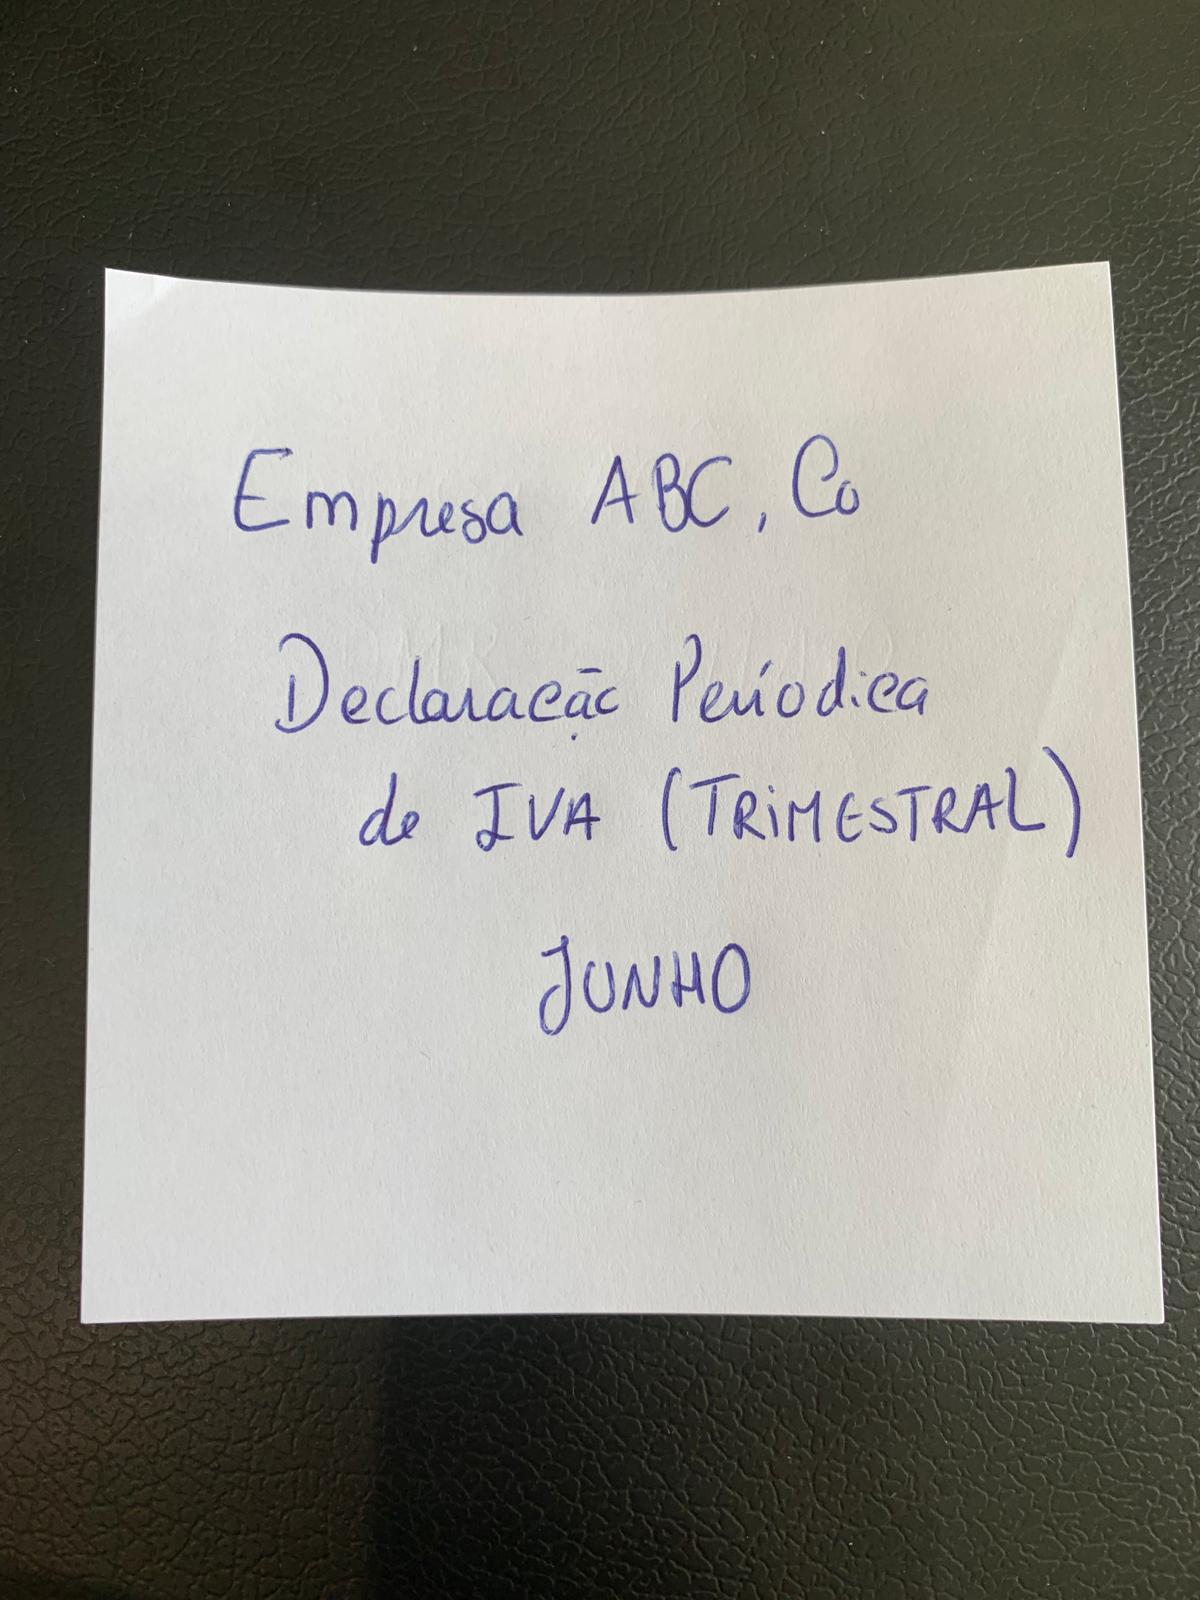 Empresa ABC, Co
Declaração Períodica
de IVA (TRIMESTRAL)
JUNHO